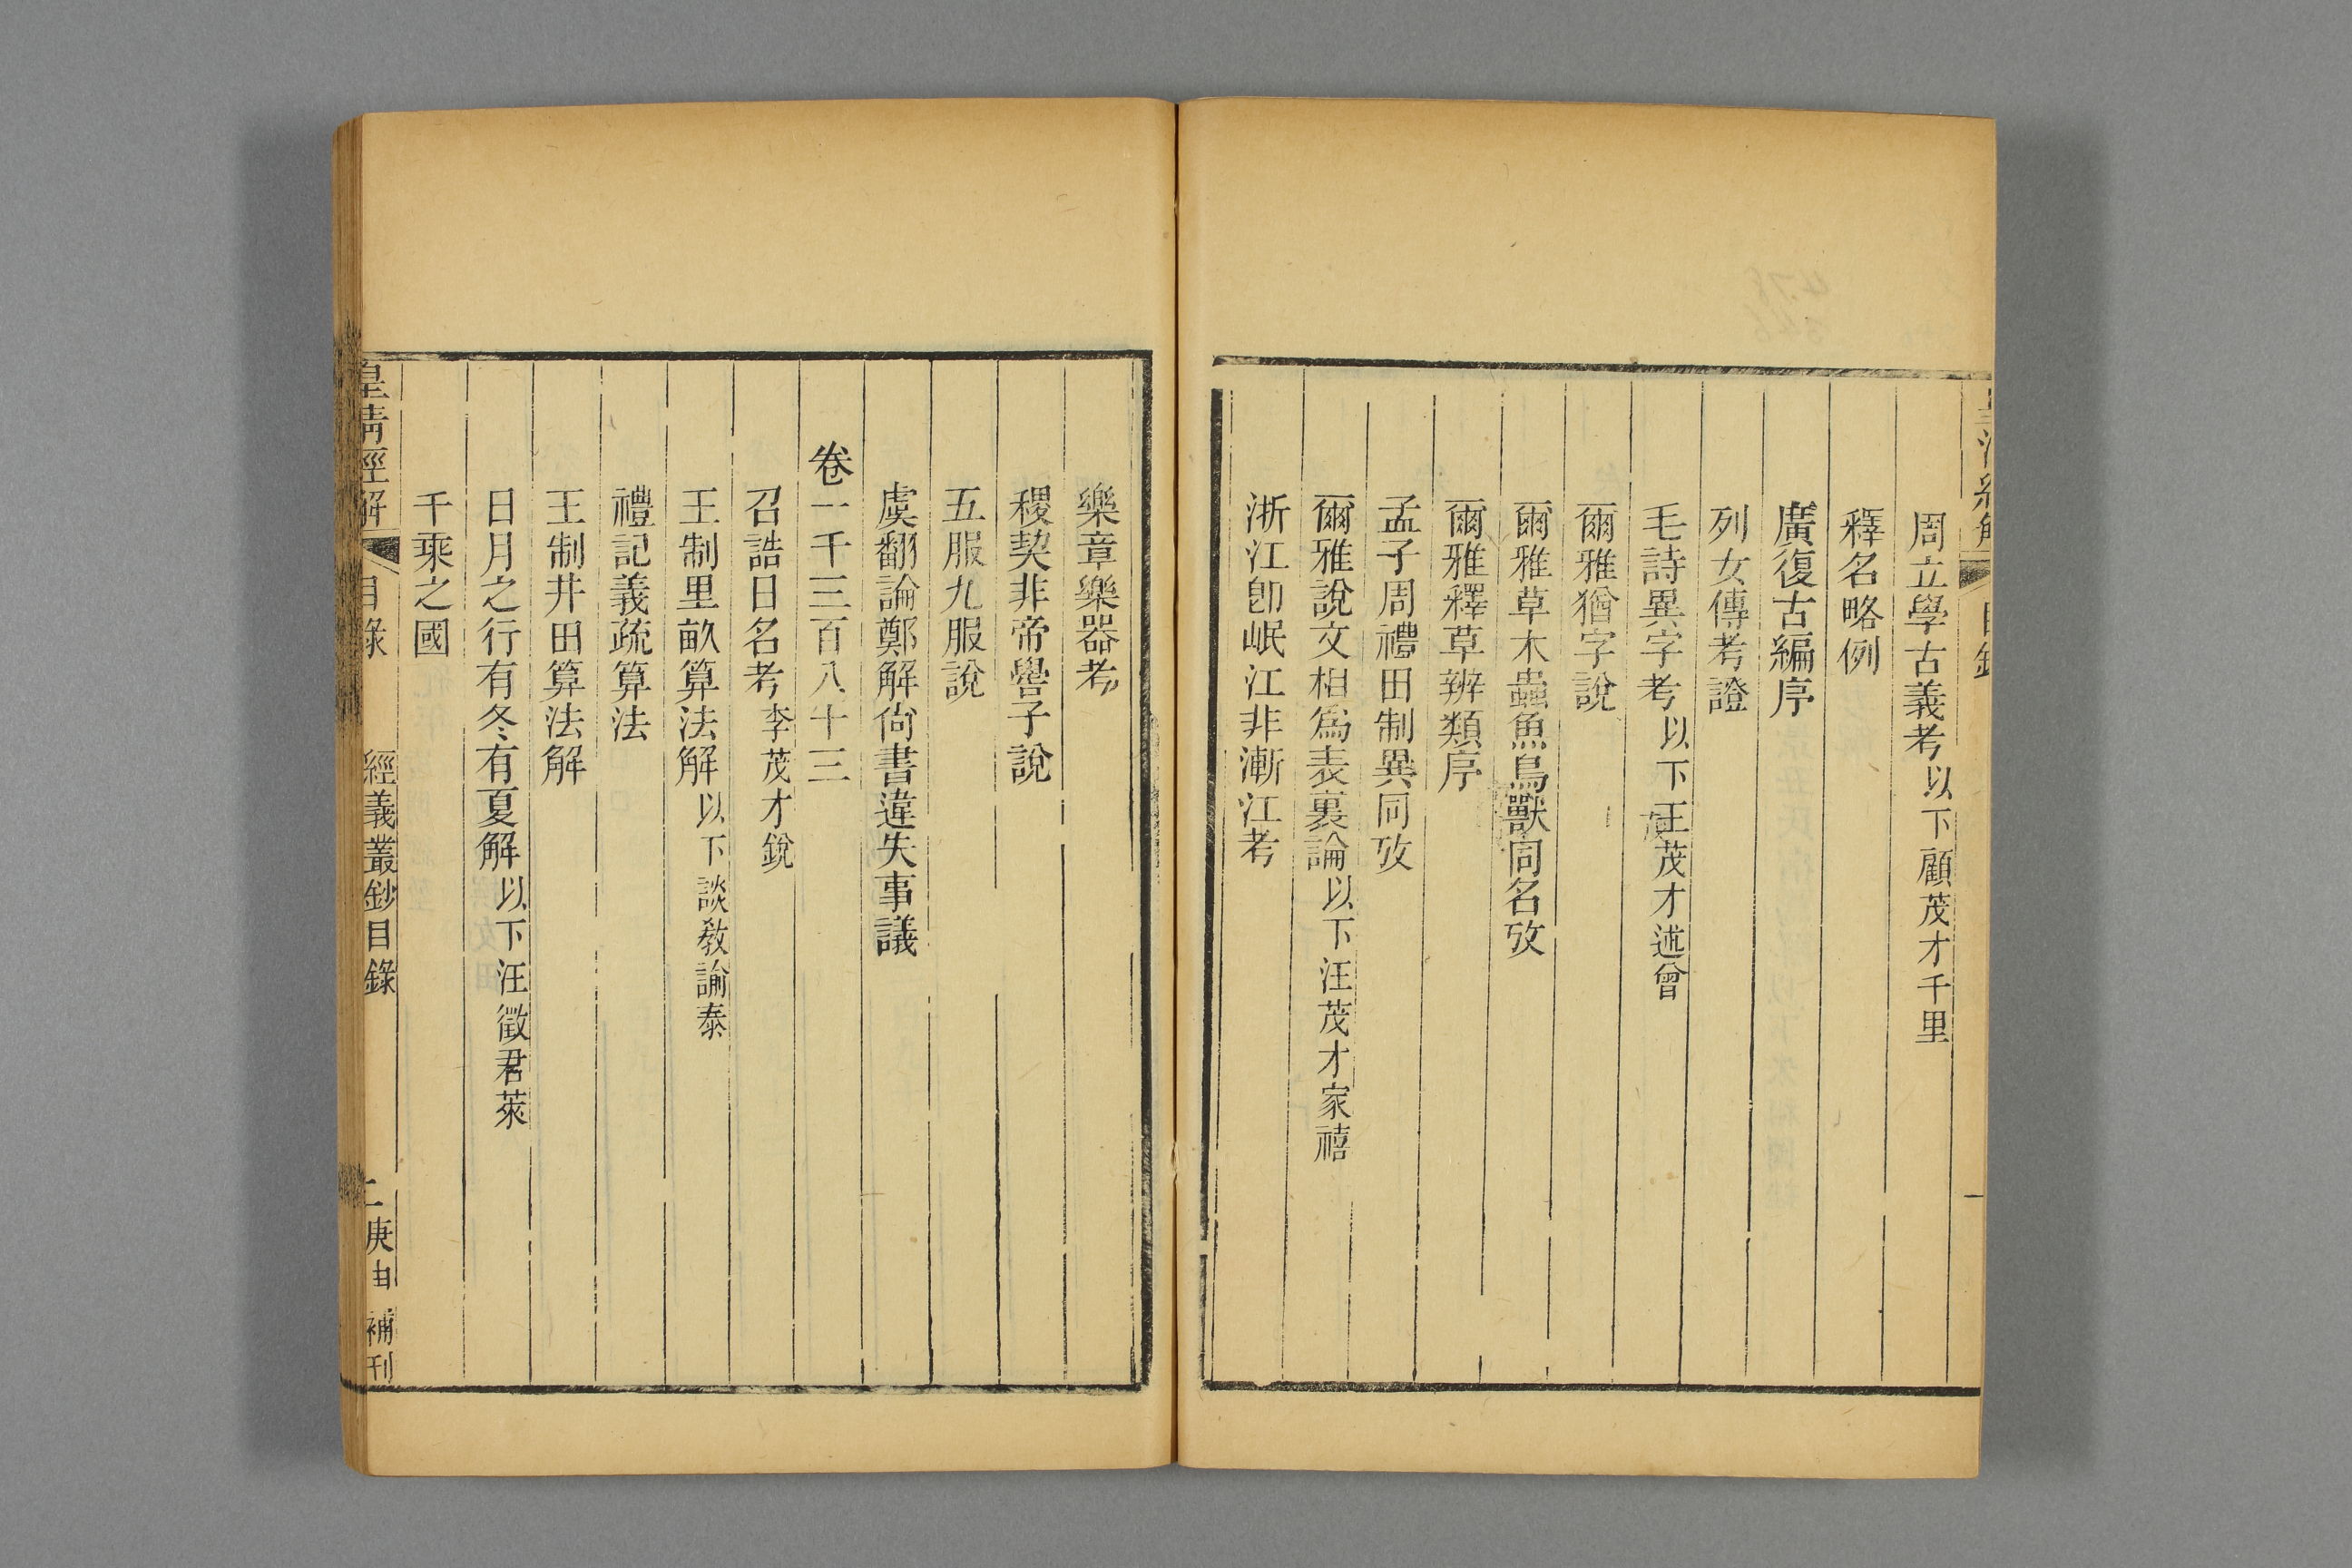 周立學古義考以下顧茂才千里
釋名略例
廣復古編序
列女傳考證
毛詩異字考以下王茂才述曾
爾雅猶字說
爾雅草木蟲魚鳥獸同名攷
爾雅釋草辨類序
孟子周禮田制異同攷
爾雅說文相爲表裏論以下汪茂才家禧
浙江卽岷江非漸江考
樂章樂器考
稷契非帝嚳子說
五服九服說
虞翻論鄭解尙書違失事議
卷一千三百八十三
召誥日名考李茂才銳
王制里畝算法解以下談敎諭泰
禮記義疏算法
王制井田算法解
日月之行有冬有夏解以下汪徵君萊
千乘之國
皇清經解 目錄 經義叢鈔目錄 二 庚申補刊